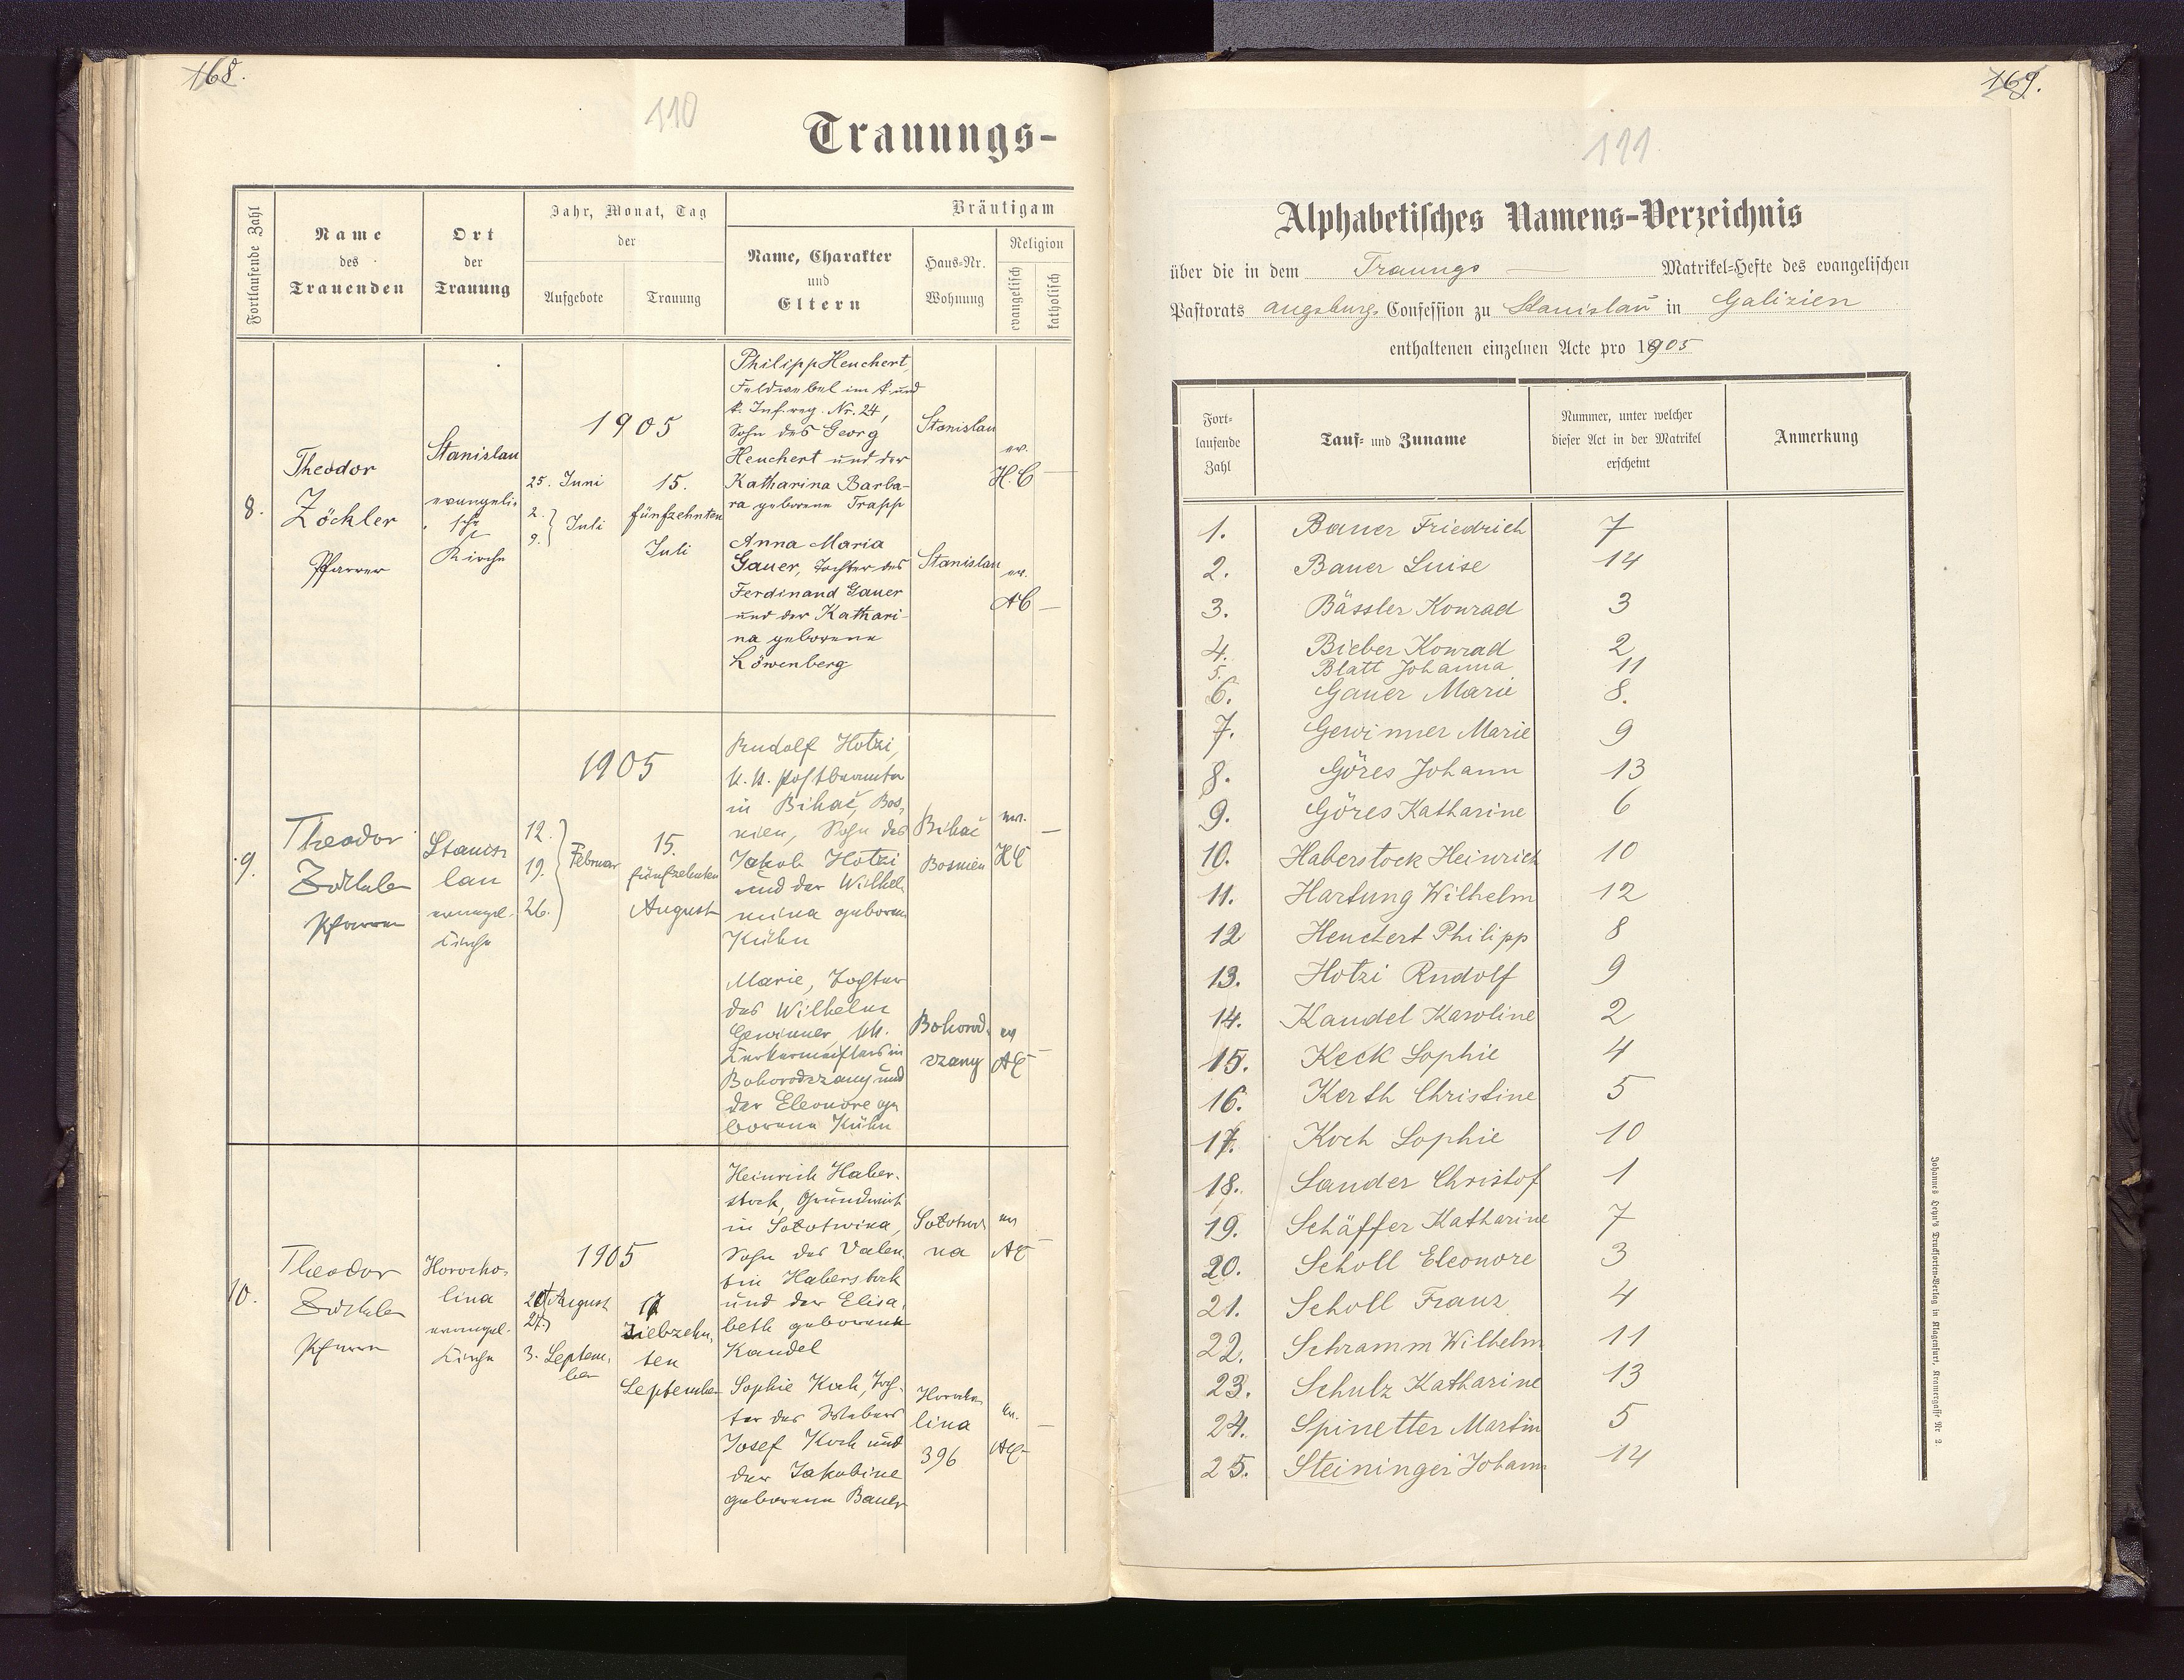 168.
110
Trauungs-
Fortlaufende Zahl
Name
des
Trauenden
Ort
der
Trauung
Jahr, Monat, Tag
der
Aufgebote
Trauung
Bräutigam
Name, Charakter
und
Eltern
Haus-Nr.
Wohnung
Religion
evangelisch
katholisch
8.
Theodor
Zöckler
Pfarrer
Stanislau
evangeli-
sche
Kirche
1905
25. Juni
2.
9. } Juli
15.
fünfzehnten
Juli
Philipp Heuchert,
Feldwebel im k und
k. Inf. reg. Nr. 24,
Sohn des Georg
Heuchert und der
Katharina Barba-
ra geborene Trapp
Stanislau
ev.
H.C —
Anna Maria
Gauer, Tochter des
Ferdinand Gauer
und der Kathari-
na geborene
Löwenberg
Stanislau
ev.
AC —
9.
Theodor
Zöckler
Pfarrer
Stanis-
lau
evangel.
Kirche
1905
12.
19. } Februar
26.
15.
fünfzehnten
August
Rudolf Hotzi,
k. k. Postbeamter
in Bihać, Bos-
nien, Sohn des
Jakob Hotzi
und der Wilhel-
mina geborene
Kühn
Bihać
Bosnien
ev.
HC —
Marie, Tochter
des Wilhelm
Gewinner, kk.
Kerkermeisters in
Bohorodczany und
der Eleonore ge-
borene Kühn
Bohorod-
czany
ev
AC —
10.
Theodor
Zöckler
Pfarrer
Horocho-
lina
evangel.
Kirche
1905
20. } August
27.
3. Septem-
ber
17
Siebzehn-
ten
September
Heinrich Haber-
stock, Grundwirt
in Sołotwina,
Sohn des Valen-
tin Haberstock
und der Elisa-
beth geborene
Kandel
Sołotwi-
na
ev
AC —
Sophie Koch, Toch-
ter des Webers
Josef Koch und
der Jakobine
geborene Bauer
Horocho-
lina
396
ev.
AC —
169.
111
Alphabetisches Namens-Verzeichnis
über die in dem Trauungs — Matrikel-Hefte des evangelischen
Pastorats augsburg. Confession zu Stanislau in Galizien
enthaltenen einzelnen Acte pro 1905
Fort-
laufende
Zahl
Tauf- und Zuname
Nummer, unter welcher
dieser Act in der Matrikel
erscheint
Anmerkung
1. Bauer Friedrich 7
2. Bauer Luise 14
3. Bässler Konrad 3
4. Bieber Konrad 2
5. Blatt Johanna 11
6. Gauer Marie 8.
7. Gewinner Marie 9
8. Göres Johann 13
9. Göres Katharine 6
10. Haberstock Heinrich 10
11. Hartung Wilhelm 12
12 Heuchert Philipp 8
13. Hotzi Rudolf 9
14. Kandel Karoline 2
15. Keck Sophie 4
16. Kerth Christine 5
17. Koch Sophie 10
18. Sander Christof 1
19. Schäffer Katharine 7
20. Scholl Eleonore 3
21. Scholl Franz 4
22. Schramm Wilhelm 11
23. Schulz Katharine 13
24. Spinetter Martin 5
25. Steininger Johann 14
Johannes Heyn's Drucksorten-Verlag in Klagenfurt, Kramergasse Nr 2